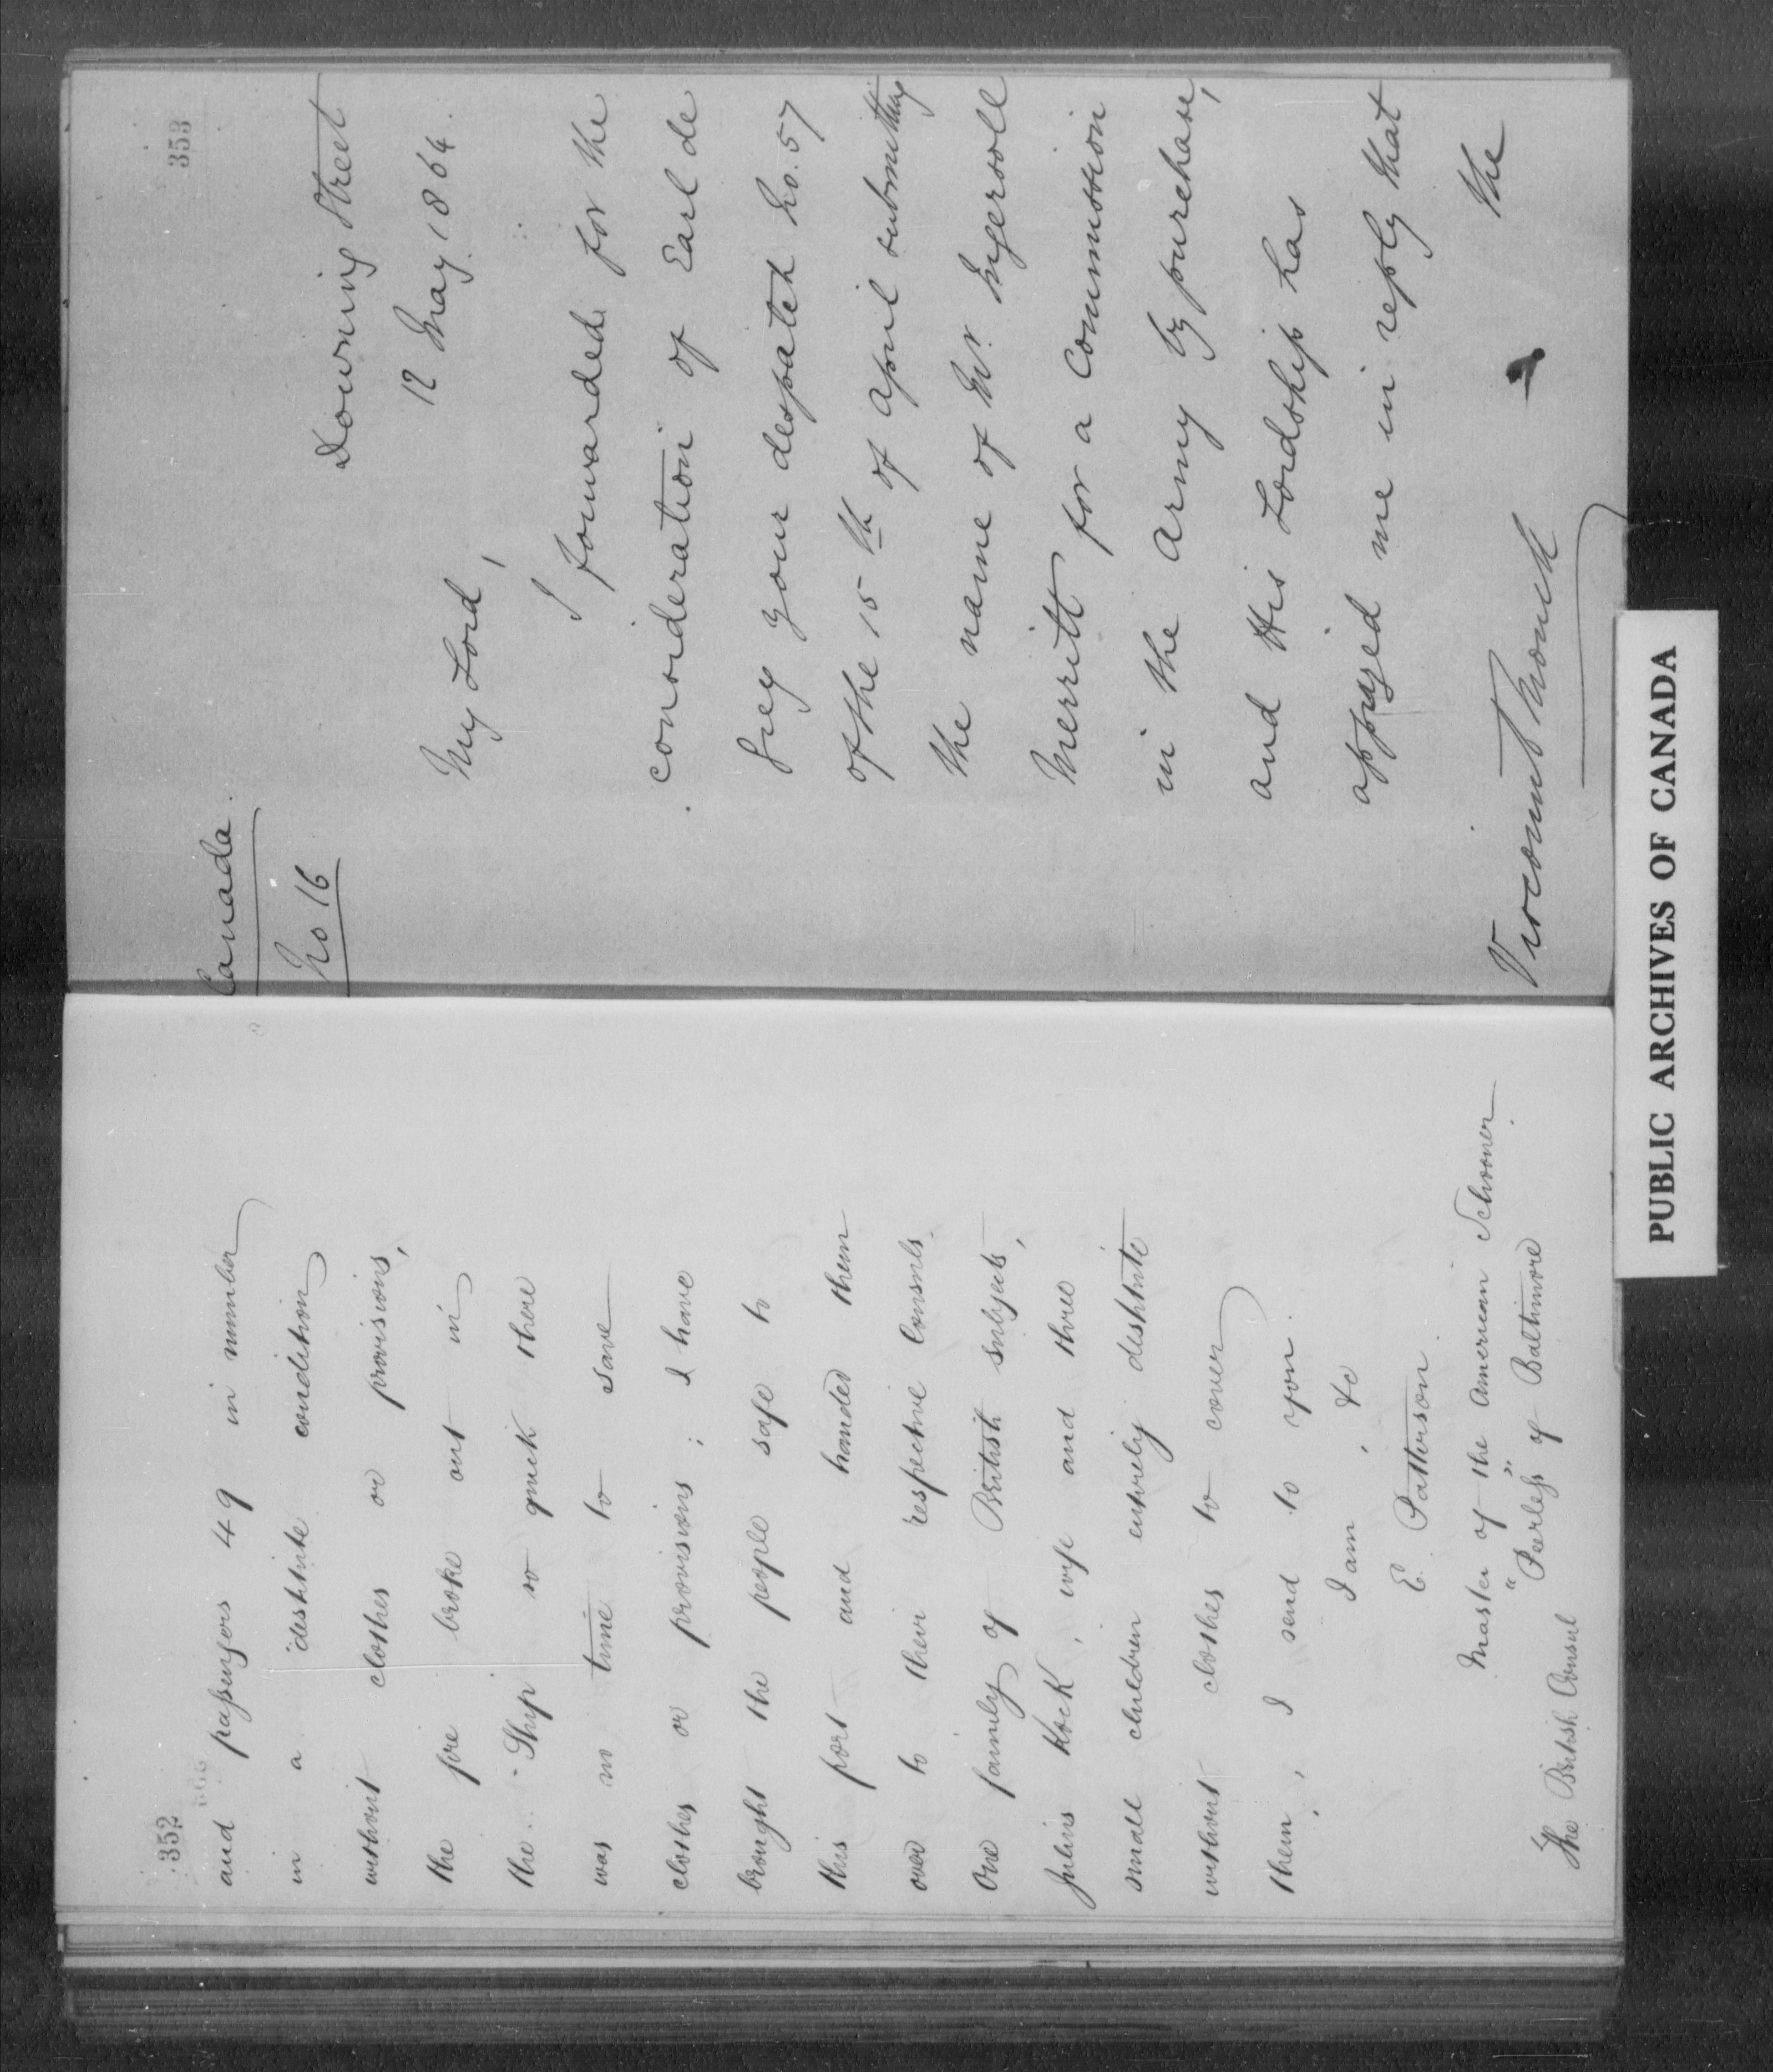 352
and passengers 49 in number
in a destitute condition
without clothes or provisions,
the fire broke out in
the Ship so quick there
was no time to save
clothes or provisions; I have
brought the people safe to
this port and handed them
over to their respective Consuls.
One family of British subjects,
Julius Kock, wife and three
small children entirely destitute
without clothes to cover
them, I send to you.
I am, &c
E. Patterson.
Master of the American Schooner
"Peerless" of Baltimore.
The British Consul
353
Canada.
No 16
Downing Street
12 May 1864.
My Lord,
I forwarded for the
consideration of Earl de
Grey your despatch No. 57
of the 15th of April submitting
the name of Mr. Ingersoll
Merritt for a Commission
in the Army by purchase,
and His Lordship has
apprized me in reply that
the
Viscount Monck
PUBLIC ARCHIVES OF CANADA